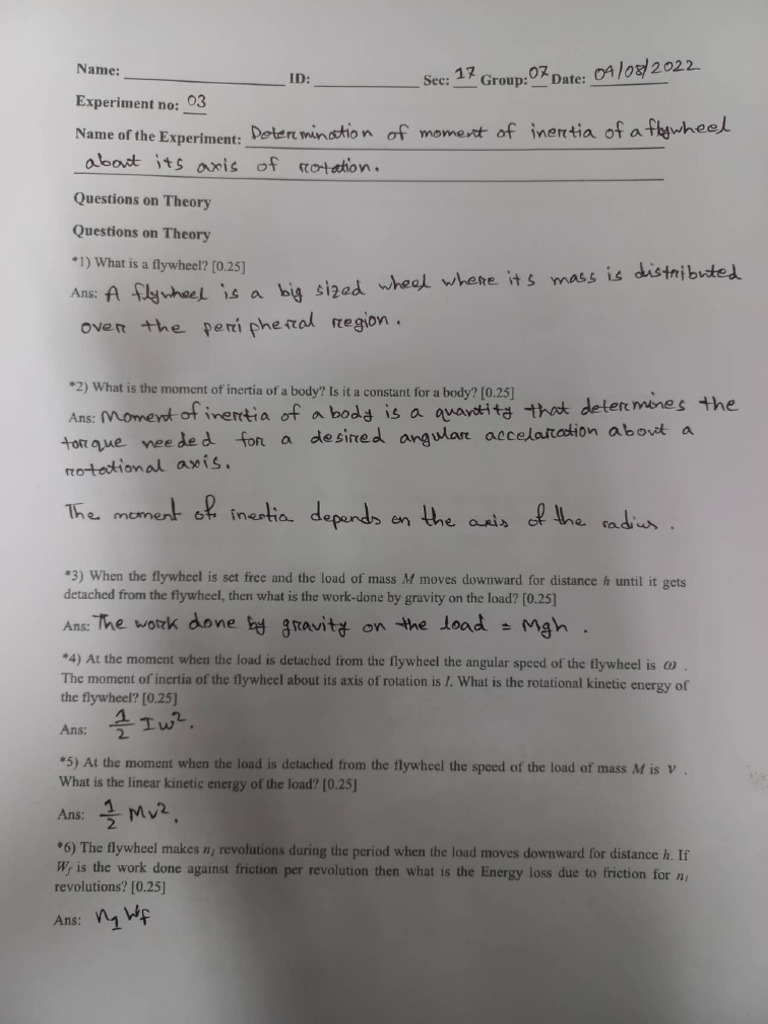 Name: ____________ ID: ____________ Sec: 17 Group: 07 Date: 04/08/2022
Experiment no: 03
Name of the Experiment: Determination of moment of inertia of a flywheel
about its axis of rotation.
Questions on Theory
Questions on Theory
*1) What is a flywheel? [0.25]
Ans: A flywheel is a big sized wheel where its mass is distributed
over the peripheral region.
*2) What is the moment of inertia of a body? Is it a constant for a body? [0.25]
Ans: Moment of inertia of a body is a quantity that determines the
torque needed for a desired angular accelaration about a
rotational axis.
The moment of inertia depends on the axis of the radius.
*3) When the flywheel is set free and the load of mass M moves downward for distance h until it gets
detached from the flywheel, then what is the work-done by gravity on the load? [0.25]
Ans: The work done by gravity on the load = Mgh.
*4) At the moment when the load is detached from the flywheel the angular speed of the flywheel is ω .
The moment of inertia of the flywheel about its axis of rotation is I. What is the rotational kinetic energy of
the flywheel? [0.25]
Ans: 1/2 Iw².
*5) At the moment when the load is detached from the flywheel the speed of the load of mass M is v .
What is the linear kinetic energy of the load? [0.25]
Ans: 1/2 Mv².
*6) The flywheel makes n₁ revolutions during the period when the load moves downward for distance h. If
W_f is the work done against friction per revolution then what is the Energy loss due to friction for n₁
revolutions? [0.25]
Ans: n₁ W_f